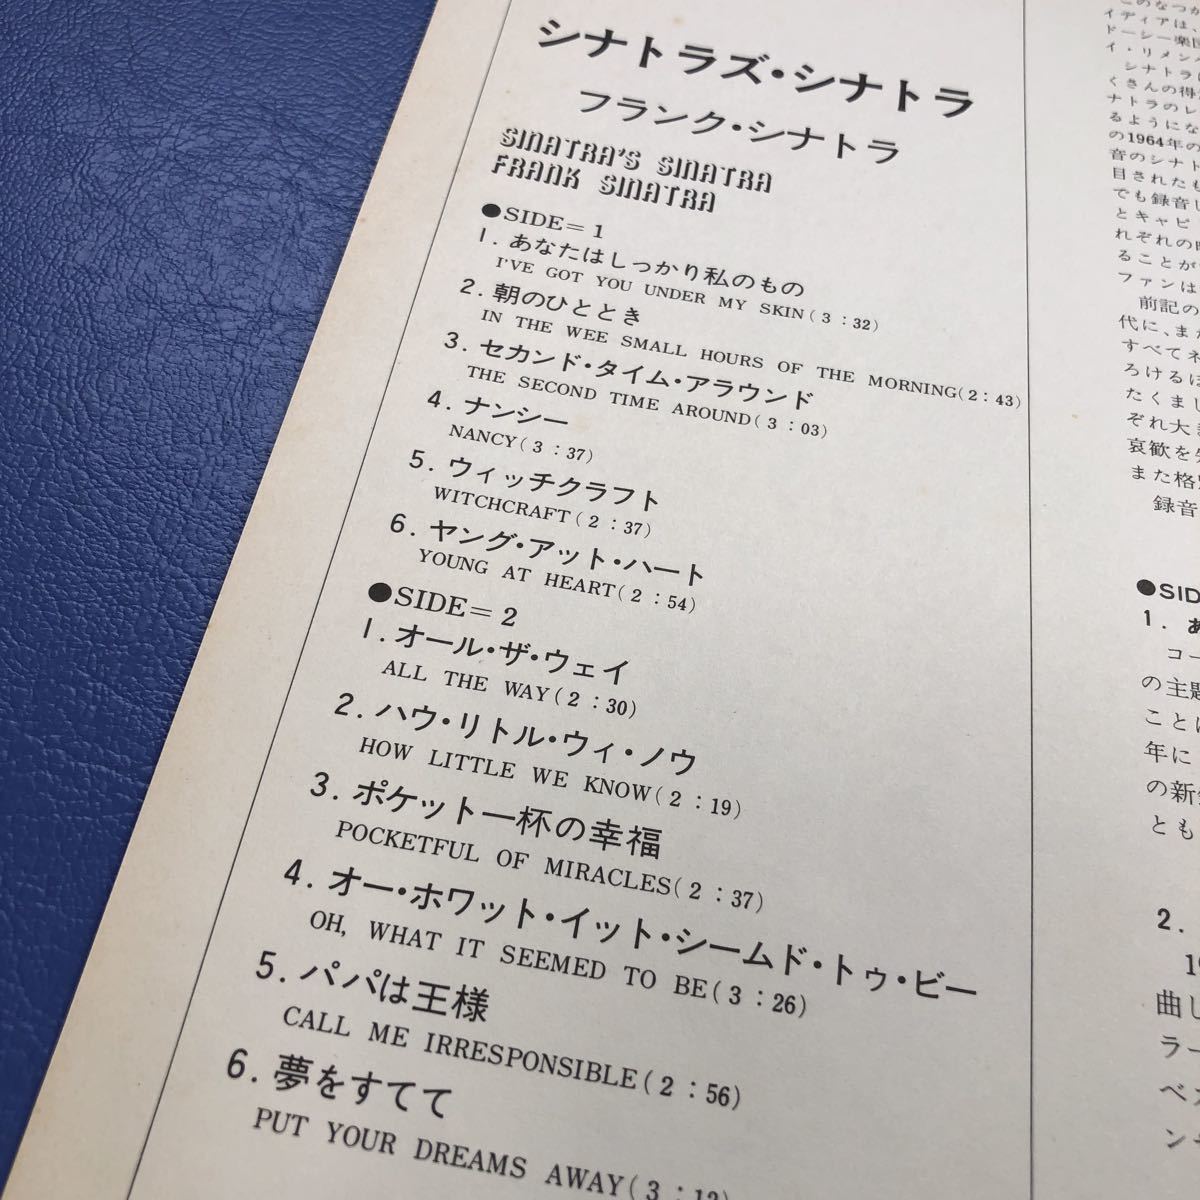 シナトラズ・シナトラ
フランク・シナトラ
SINATRA'S SINATRA
FRANK SINATRA
●SIDE=1
1. あなたはしっかり私のもの
I'VE GOT YOU UNDER MY SKIN(3:32)
2. 朝のひととき
IN THE WEE SMALL HOURS OF THE MORNING(2:43)
3. セカンド・タイム・アラウンド
THE SECOND TIME AROUND(3:03)
4. ナンシー
NANCY(3:37)
5. ウィッチクラフト
WITCHCRAFT(2:37)
6. ヤング・アット・ハート
YOUNG AT HEART(2:54)
●SIDE=2
1. オール・ザ・ウェイ
ALL THE WAY(2:30)
2. ハウ・リトル・ウィ・ノウ
HOW LITTLE WE KNOW(2:19)
3. ポケット一杯の幸福
POCKETFUL OF MIRACLES(2:37)
4. オー・ホワット・イット・シームド・トゥ・ビー
OH, WHAT IT SEEMED TO BE(3:26)
5. パパは王様
CALL ME IRRESPONSIBLE(2:56)
6. 夢をすてて
PUT YOUR DREAMS AWAY(3:12)
このなつか
イディアは、
ドーシー楽団
イ・リメン
シナトラ
くさんの得
ナトラのレ
るようにな
の1964年の
音のシナト
目されたも
でも録音し
とキャピ
れぞれの
ることが
ファンは
前記の
代に、また
すべてネ
ろけるほ
たくまし
ぞれ大
哀歓を
また格
録音
●SID
1. あ
コー
の主題
ことは
年に
の新
とも
2.
19
曲し
ラー
ベス
ンサ